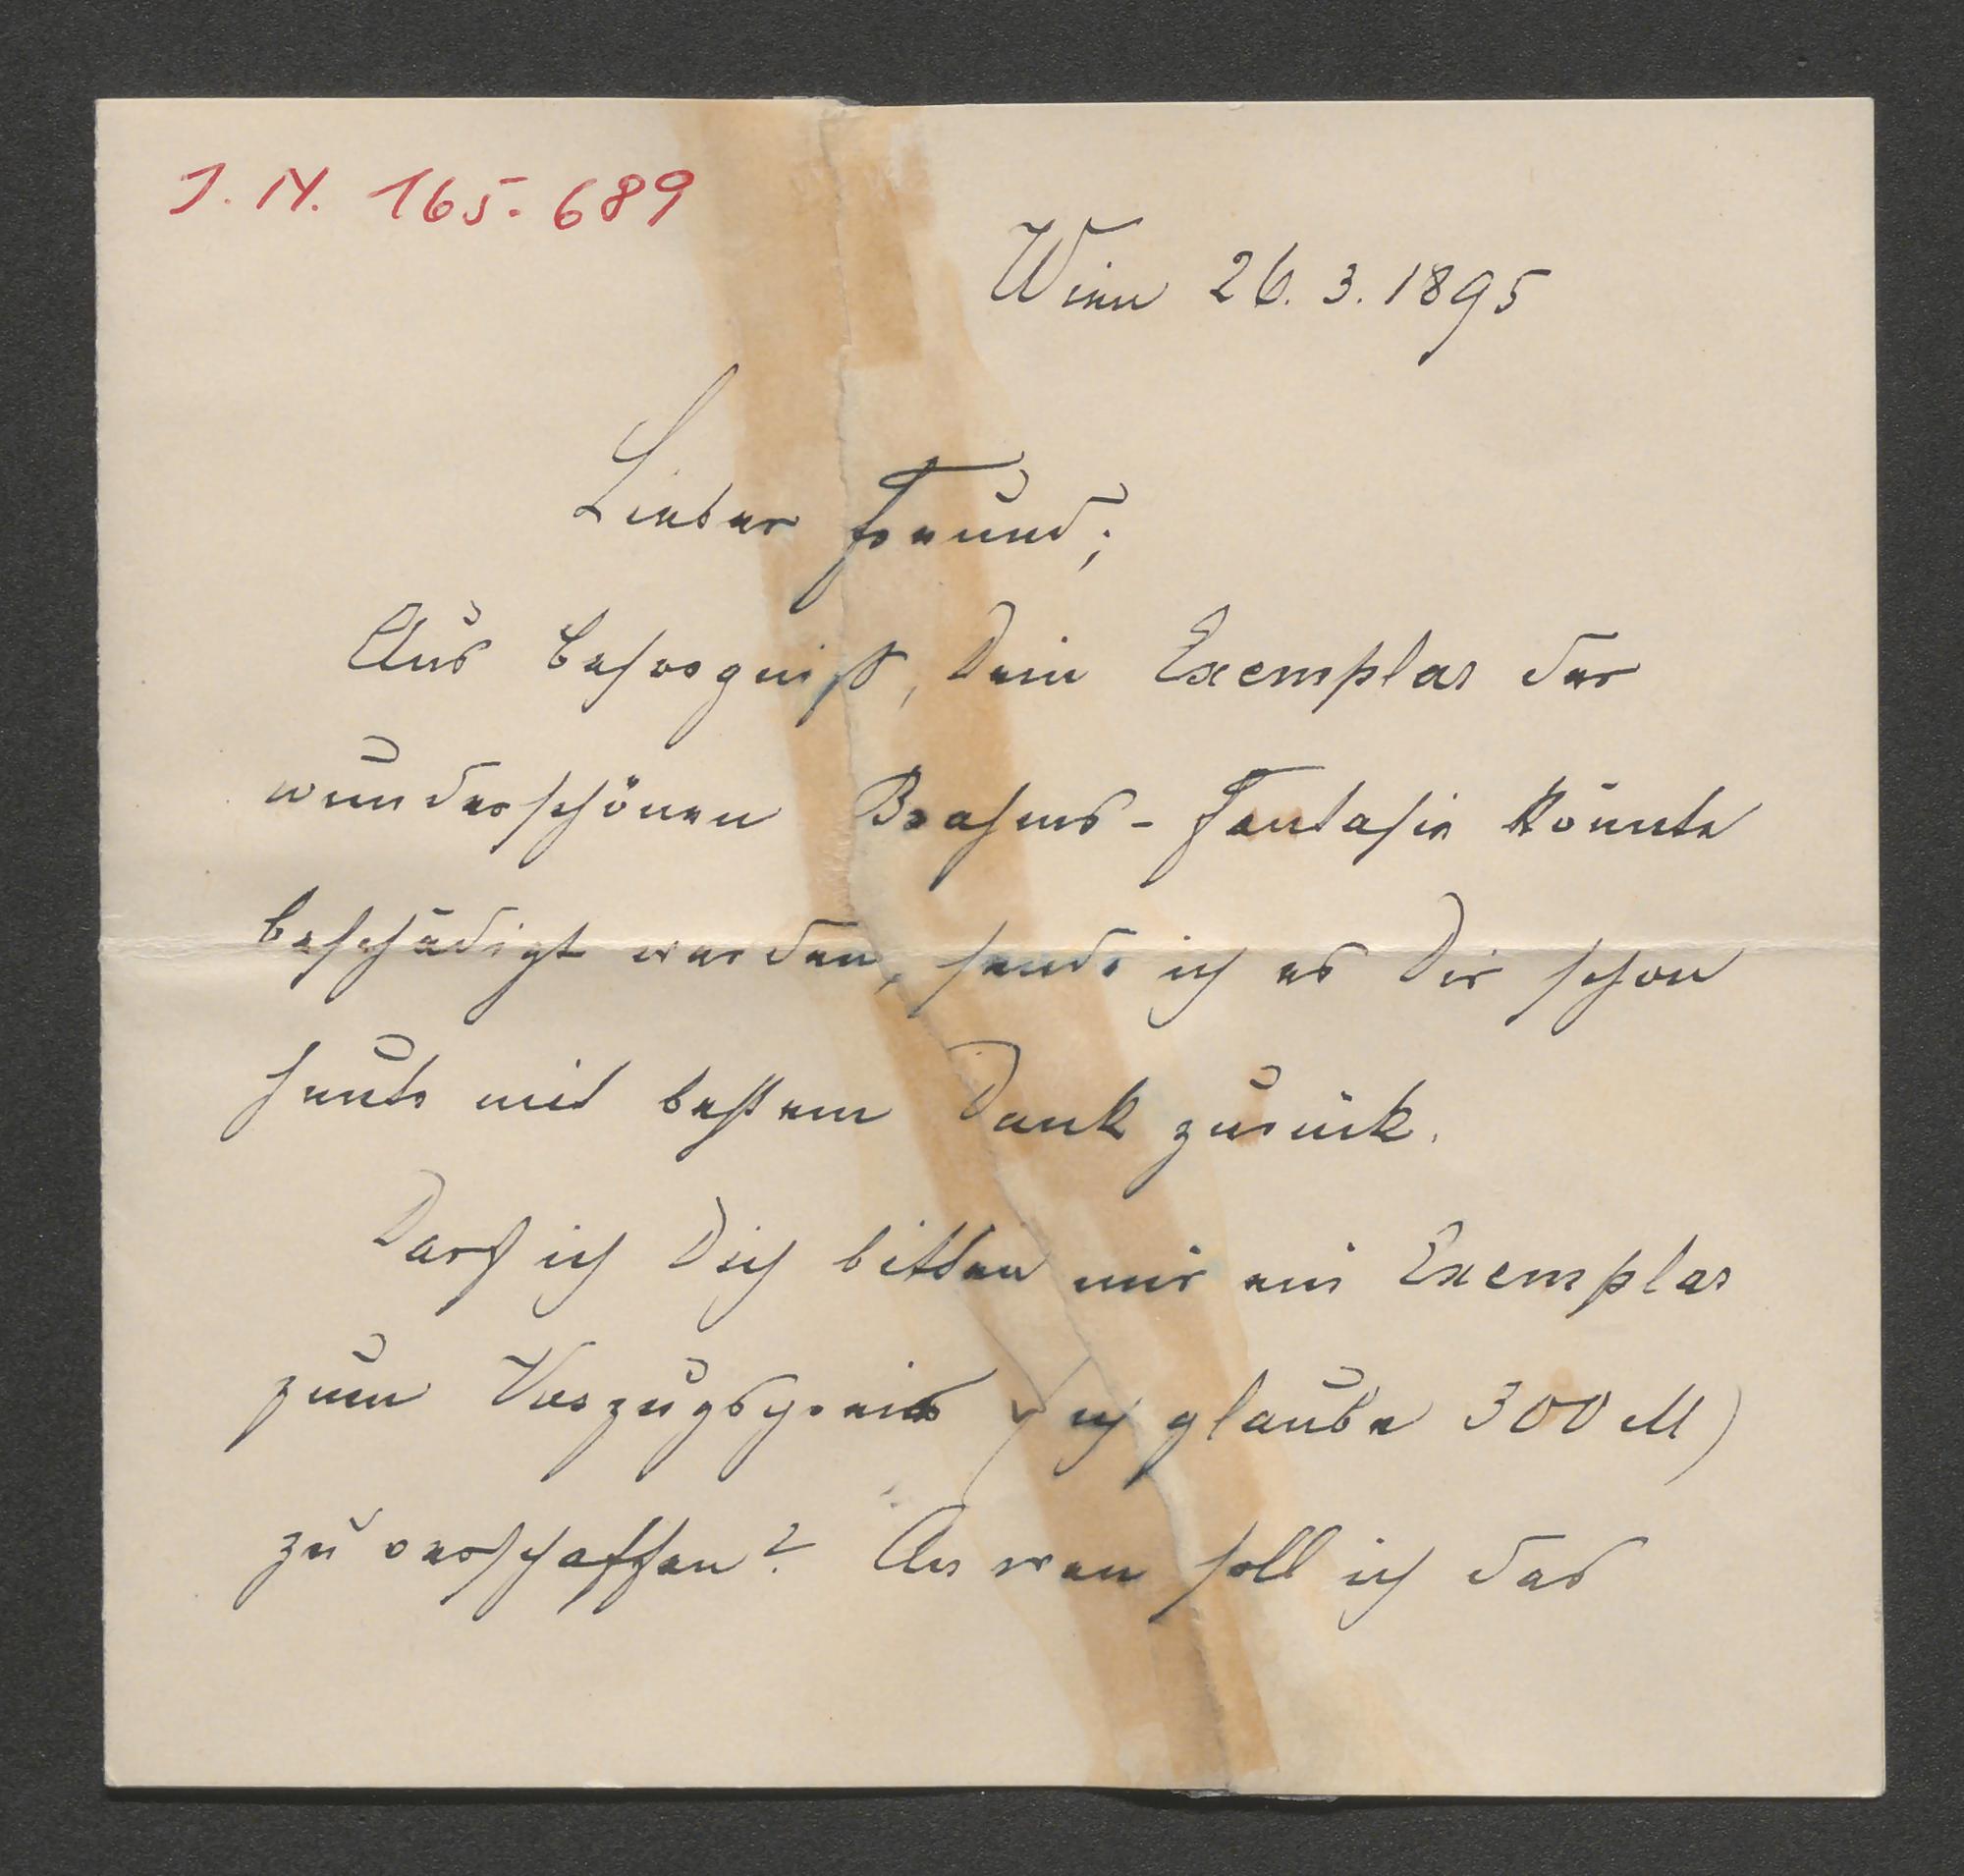 J.N. 165.689
Wien 26. 3. 1895
Lieber Freund;
Aus Besorgniß, Dein Exemplar der
wunderschönen Brahms-Fantasie könnte
beschädigt werden, sende ich es Dir schon
heute mit bestem Dank zurück.
Darf ich Dich bitten mir ein Exemplar
zum Vorzugspreis (ich glaube 300 M)
zu verschaffen? An wen soll ich das